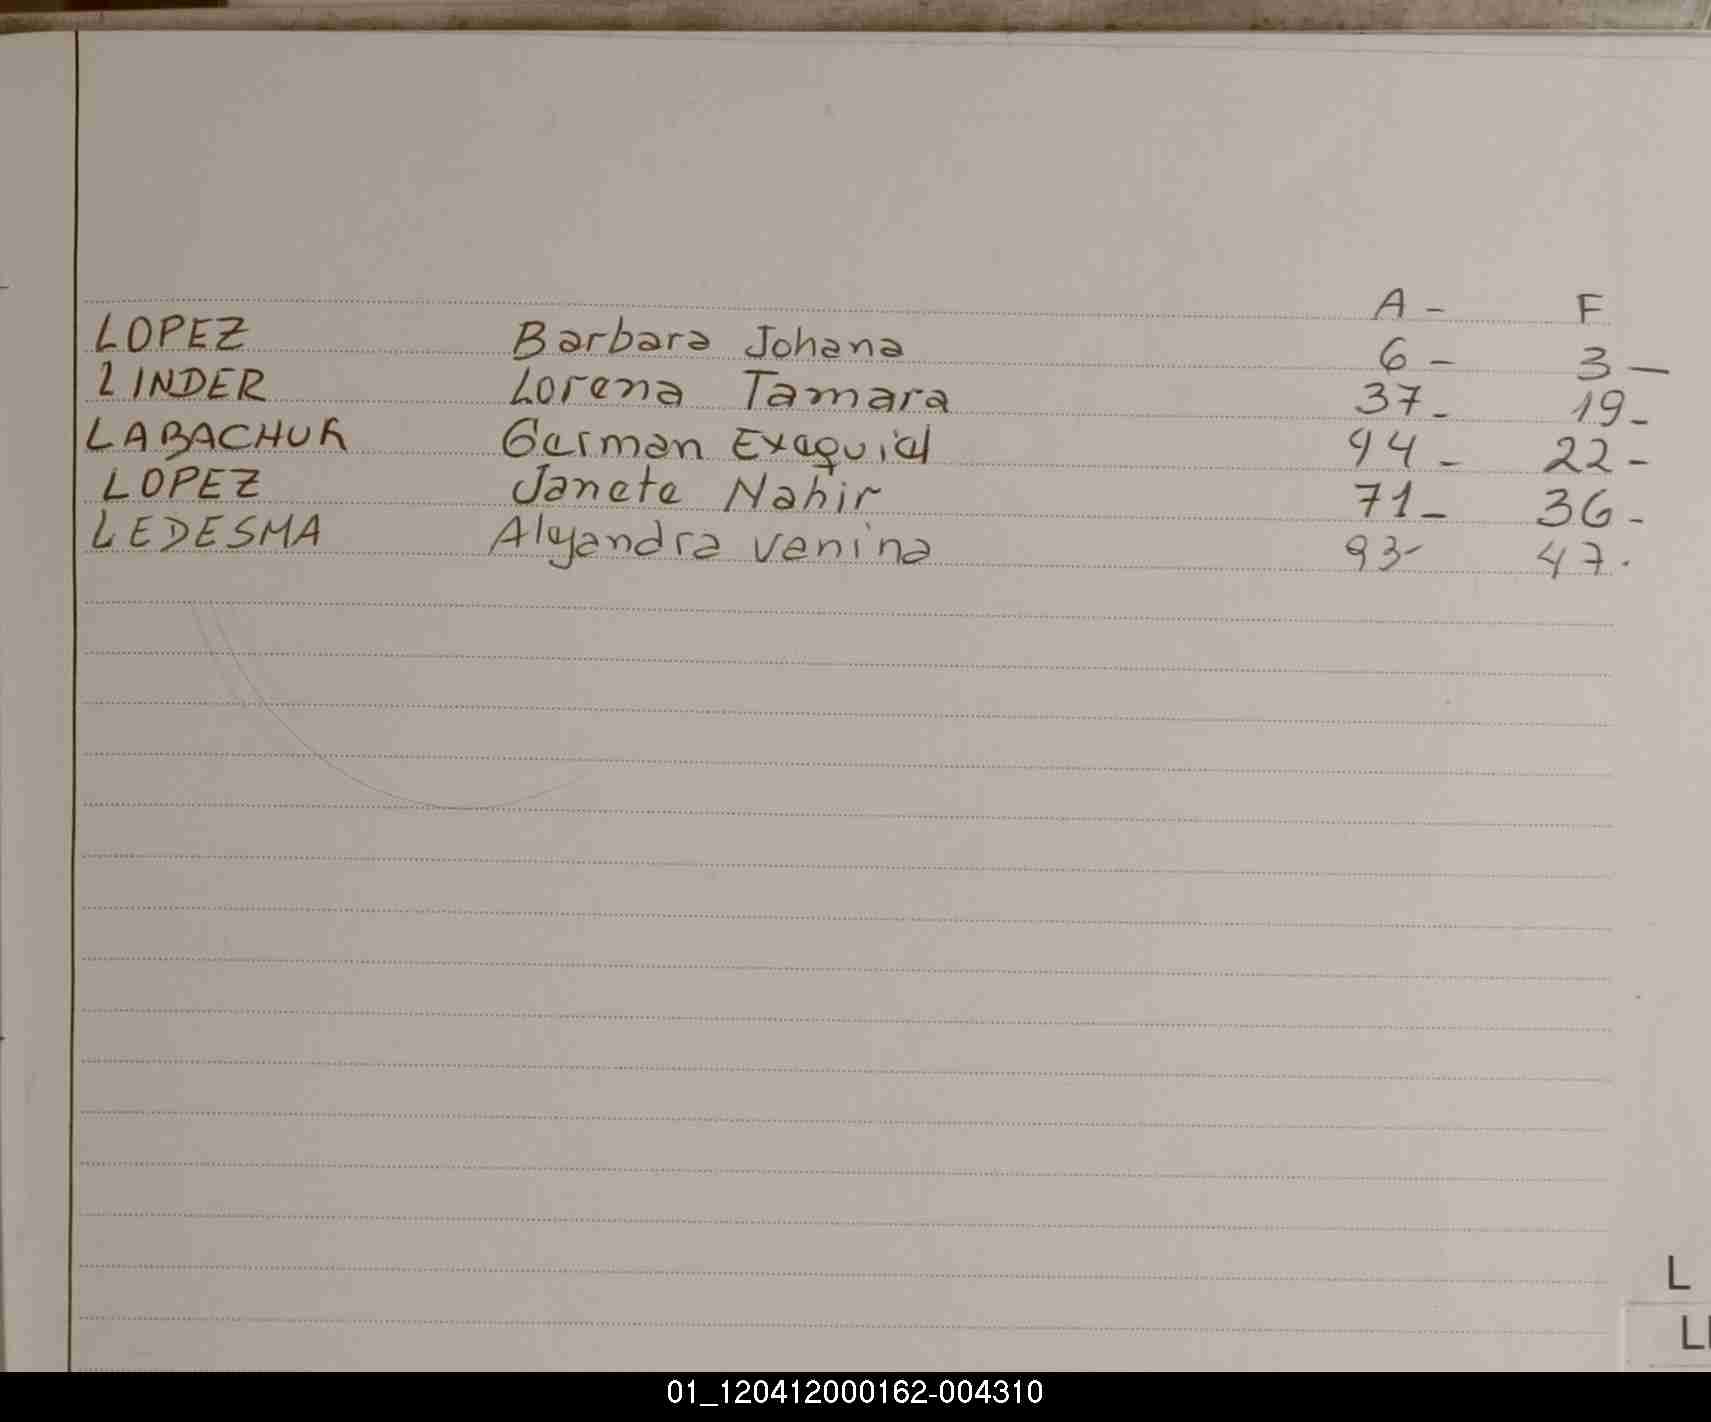 A - F
LOPEZ Barbara Johana 6 - 3 -
LINDER Lorena Tamara 37 - 19 -
LABACHUK German Exequiel 44 - 22 -
LOPEZ Janete Nahir 71 - 36 -
LEDESMA Alejandra Venina 93 - 47.
L
LL
01_120412000162-004310